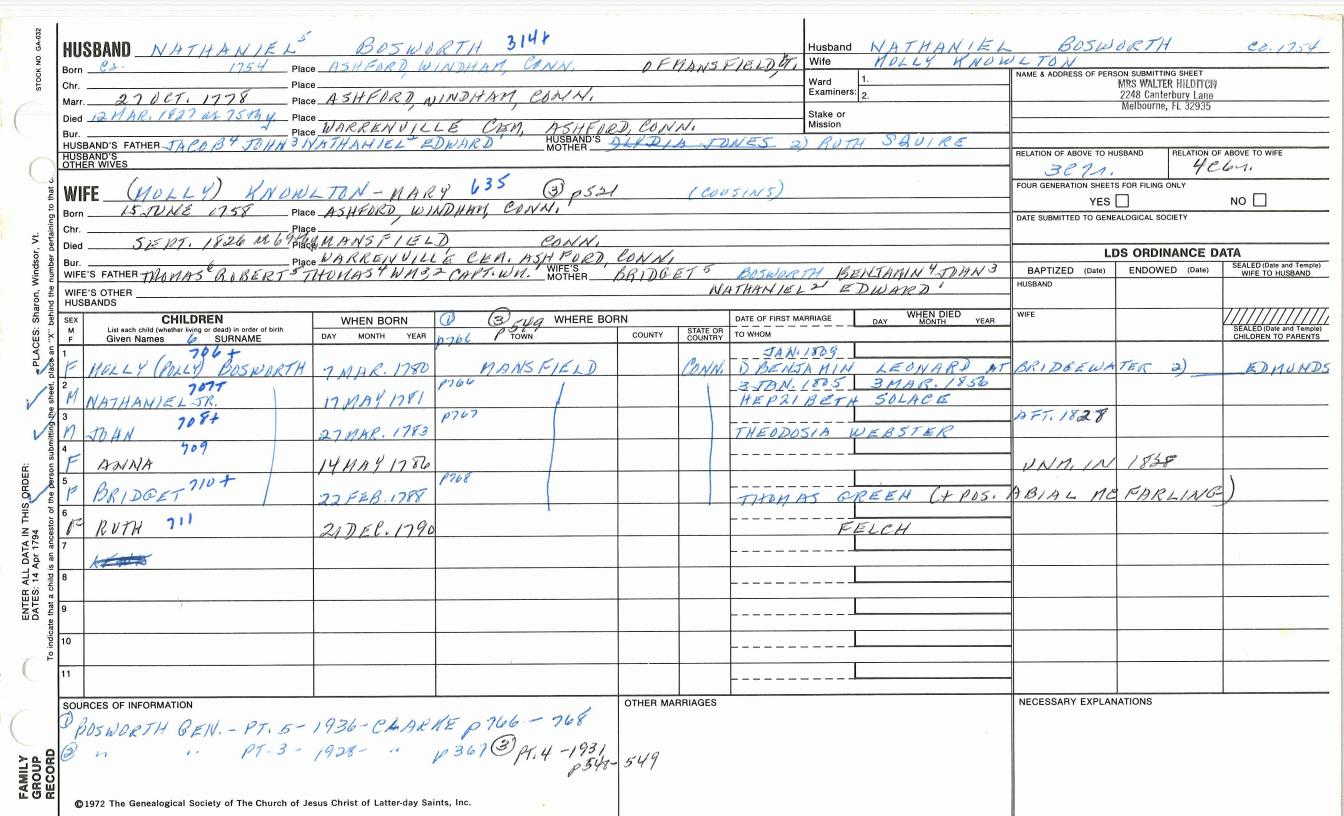 STOCK NO GA-032
PLACES: Sharon, Windsor, Vt.
ENTER ALL DATA IN THIS ORDER:
DATES: 14 Apr 1794
To indicate that a child is an ancestor of the person submitting the sheet, place an "X" behind the number pertaining to that c.
FAMILY
GROUP
RECORD
HUSBAND NATHANIEL 5 BOSWORTH 314+
Born Ca. 1754 Place ASHFORD, WINDHAM, CONN. OF MANSFIELD, Ct.
Chr. Place
Marr. 27 OCT. 1778 Place ASHFORD, WINDHAM, CONN.
Died 12 MAR. 1827 Place
Bur. Place WARRENVILLE CEM, ASHFORD, CONN.
HUSBAND'S FATHER JACOB 4 JOHN 3 NATHANIEL 2 EDWARD 1 HUSBAND'S MOTHER LYDIA JONES 2) RUTH SQUIRE
HUSBAND'S OTHER WIVES
Husband NATHANIEL BOSWORTH CA. 1754
Wife MOLLY KNOWLTON
Ward Examiners: 1.
2.
Stake or Mission
NAME & ADDRESS OF PERSON SUBMITTING SHEET
MRS WALTER HILDITCH
2248 Canterbury Lane
Melbourne, FL 32935
RELATION OF ABOVE TO HUSBAND RELATION OF ABOVE TO WIFE
FOUR GENERATION SHEETS FOR FILING ONLY
YES NO
DATE SUBMITTED TO GENEALOGICAL SOCIETY
LDS ORDINANCE DATA
BAPTIZED (Date) ENDOWED (Date) SEALED (Date and Temple) WIFE TO HUSBAND
HUSBAND
WIFE
SEALED (Date and Temple) CHILDREN TO PARENTS
WIFE (MOLLY) KNOWLTON - MARY 635 (3) p521 (COUSINS)
Born 15 JUNE 1758 Place ASHFORD, WINDHAM, CONN.
Chr. Place
Died SEPT. 1826 Place MANSFIELD CONN.
Bur. Place WARRENVILLE CEM. ASHFORD, CONN.
WIFE'S FATHER THOMAS 6 ROBERT 5 THOMAS 4 WM 3,2 CAPT. WM. 1 WIFE'S MOTHER BRIDGET 5 BOSWORTH BENJAMIN 4 JOHN 3
NATHANIEL 2 EDWARD 1
WIFE'S OTHER HUSBANDS
SEX M F
CHILDREN
List each child (whether living or dead) in order of birth
Given Names 6 SURNAME
WHEN BORN
DAY MONTH YEAR
(1) p766 (3) p549 WHERE BORN
TOWN COUNTY STATE OR COUNTRY
DATE OF FIRST MARRIAGE
TO WHOM
WHEN DIED
DAY MONTH YEAR
1 F MOLLY (POLLY) BOSWORTH 706+ 7 MAR. 1780 MANSFIELD CONN. JAN. 1809
BENJAMIN LEONARD AT BRIDGEWATER 2) EDMUNDS
2 M NATHANIEL JR. 707+ 17 MAY 1781 p766 3 JAN. 1805 3 MAR. 1856
HEPZIBETH SOLACE
3 M JOHN 708+ 27 MAR. 1783 p767 THEODOSIA WEBSTER AFT. 1828
4 F ANNA 709 14 MAY 1786 UNM. IN 1828
5 F BRIDGET 710+ 22 FEB. 1788 p768 THOMAS GREEN (+ POS. ABIAL MC FARLING)
6 F RUTH 711 21 DEC. 1790 FELCH
7
8
9
10
11
SOURCES OF INFORMATION
(1) BOSWORTH GEN. - PT. 5 - 1936 - CLARKE p766 - 768
(2) " " PT. 3 - 1928 - " p367 (3) PT. 4 - 1931
p548-549
OTHER MARRIAGES
NECESSARY EXPLANATIONS
©1972 The Genealogical Society of The Church of Jesus Christ of Latter-day Saints, Inc.